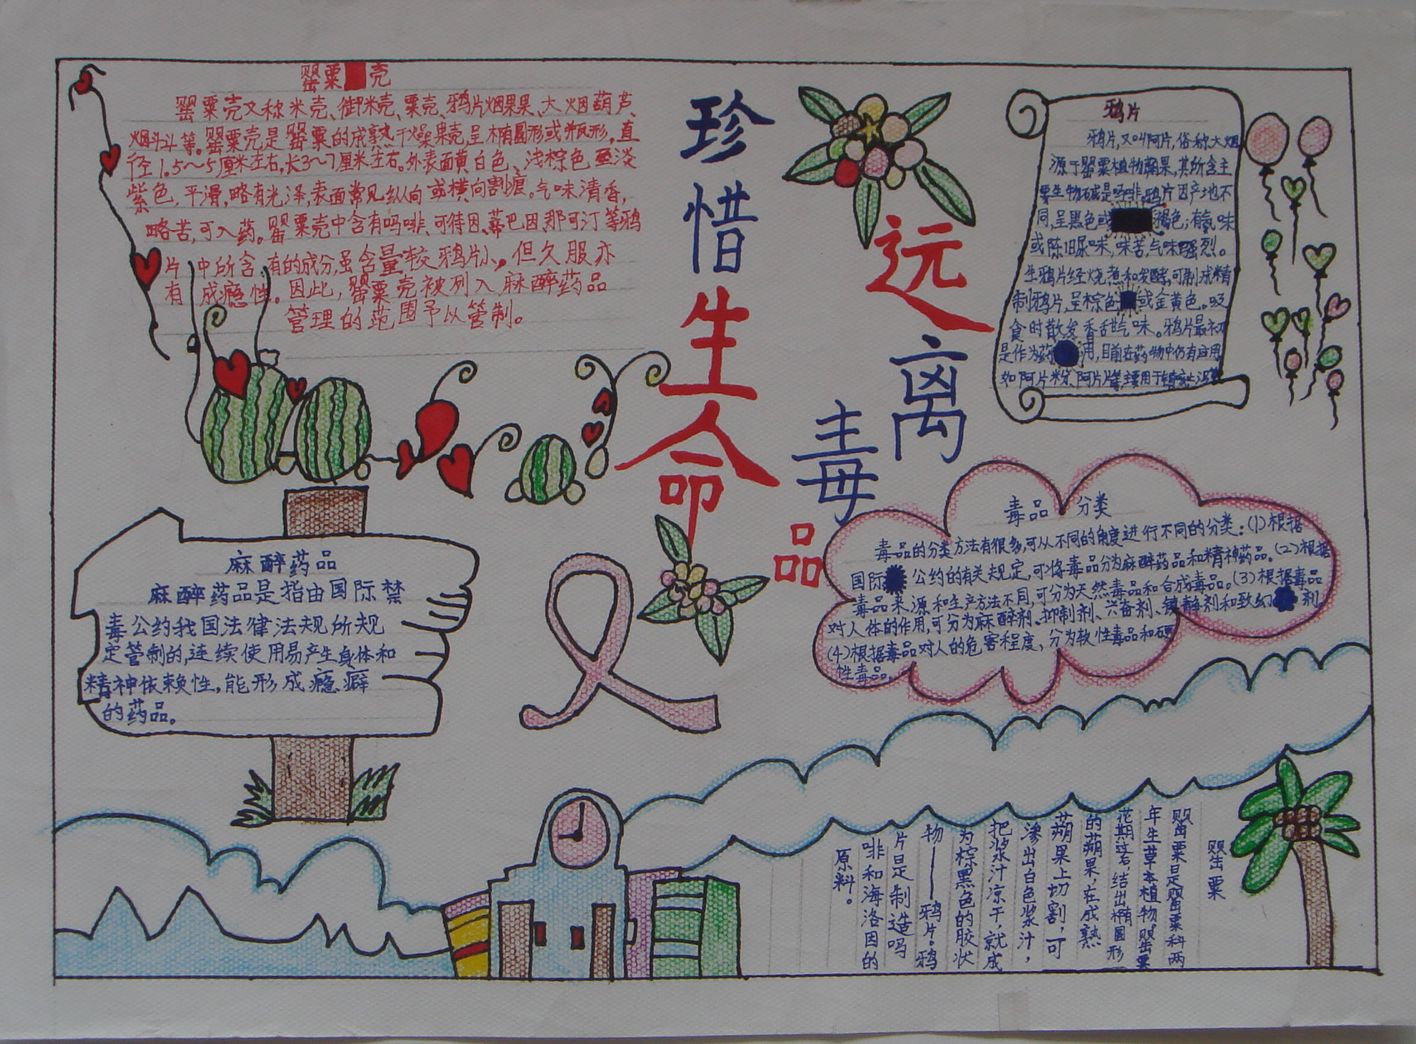 珍惜生命
远离毒品
罂粟壳
罂粟壳又称米壳、御米壳、粟壳、鸦片烟果果、大烟葫芦、
烟斗斗等。罂粟壳是罂粟的成熟干燥果壳,呈椭圆形或瓶形,直
径1.5～5厘米左右,长3～7厘米左右。外表面黄白色、浅棕色至淡
紫色,平滑,略有光泽,表面常见纵向或横向割痕。气味清香,
略苦,可入药。罂粟壳中含有吗啡、可待因、蒂巴因、那可汀等鸦
片中所含有的成分,虽含量较鸦片小,但久服亦
有成瘾性。因此,罂粟壳被列入麻醉药品
管理的范围予以管制。
鸦片
鸦片,又叫阿片,俗称大烟,
源于罂粟植物蒴果,其所含主
要生物碱是吗啡。鸦片因产地不
同,呈黑色或褐色;有氨味
或陈旧尿味,味苦,气味强烈。
生鸦片经烧煮和发酵,可制成精
制鸦片,呈棕色或金黄色。吸
食时散发香甜气味。鸦片最初
是作为药用,目前在药物中仍有应用,
如阿片粉、阿片片等,主要用于镇
毒品分类
毒品的分类方法有很多,可从不同的角度进行不同的分类:(1)根据
国际公约的有关规定,可将毒品分为麻醉药品和精神药品。(2)根据
毒品来源和生产方法不同,可分为天然毒品和合成毒品。(3)根据毒品
对人体的作用,可分为麻醉剂、抑制剂、兴奋剂、镇静剂和致幻剂
(4)根据毒品对人的危害程度,分为软性毒品和硬
性毒品。
麻醉药品
麻醉药品是指由国际禁
毒公约我国法律法规所规
定管制的,连续使用易产生身体和
精神依赖性,能形成瘾癖
的药品。
罂粟
罂粟是罂粟科两
年生草本植物,罂粟
花期过后结出椭圆形
的蒴果,在成熟
蒴果上切割,可
渗出白色浆汁,
把浆汁凉干,就成
为棕黑色的胶状
物——鸦片。鸦
片是制造吗
啡和海洛因的
原料。